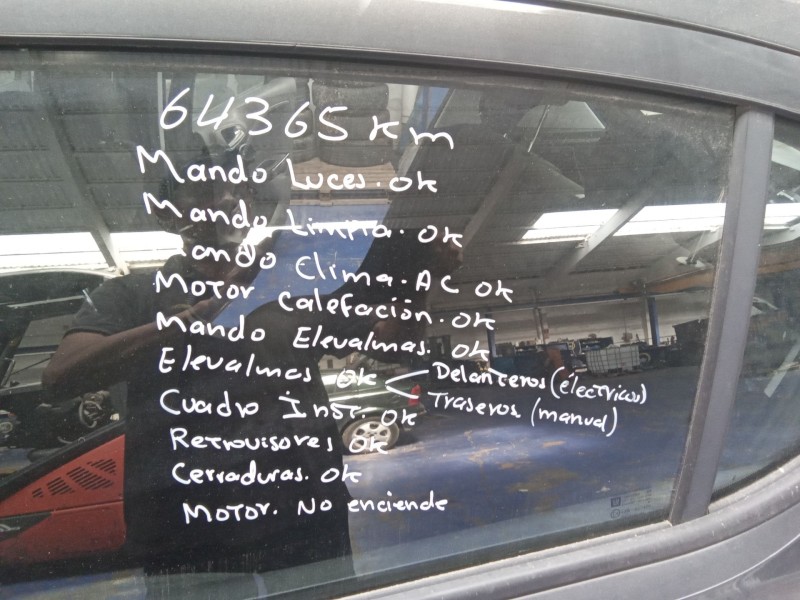 64365 km
Mando Luces. ok
Mando Limpia. ok
ando Clima. AC ok
Motor calefación. ok
Mando Elevalmas. ok
Elevalmas ok < Delanteros (électricos)
Traseros (manual)
Cuadro Inst. ok
Retrovisores ok
Cerraduras. ok
Motor. No enciende